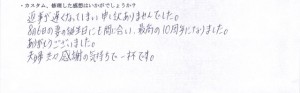 ・カスタム、修理した感想はいかがでしょうか？
返事が遅くなってしまい申し訳ありませんでした。
8月6日の妻の誕生日にも間に合い、最高の10周年になりました。
ありがとうございました。
感謝の気持ちで一杯です。